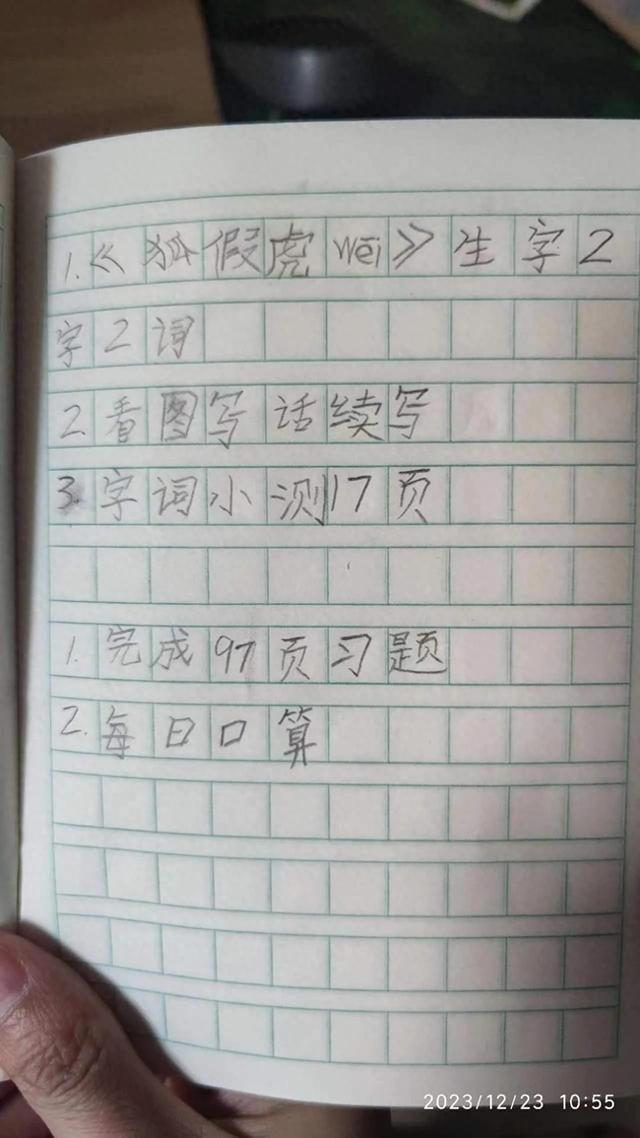 1.《狐假虎wēi》生字2
字2词
2看图写话续写
3.字词小测17页
1.完成97页习题
2.每日口算
2023/12/23 10:55